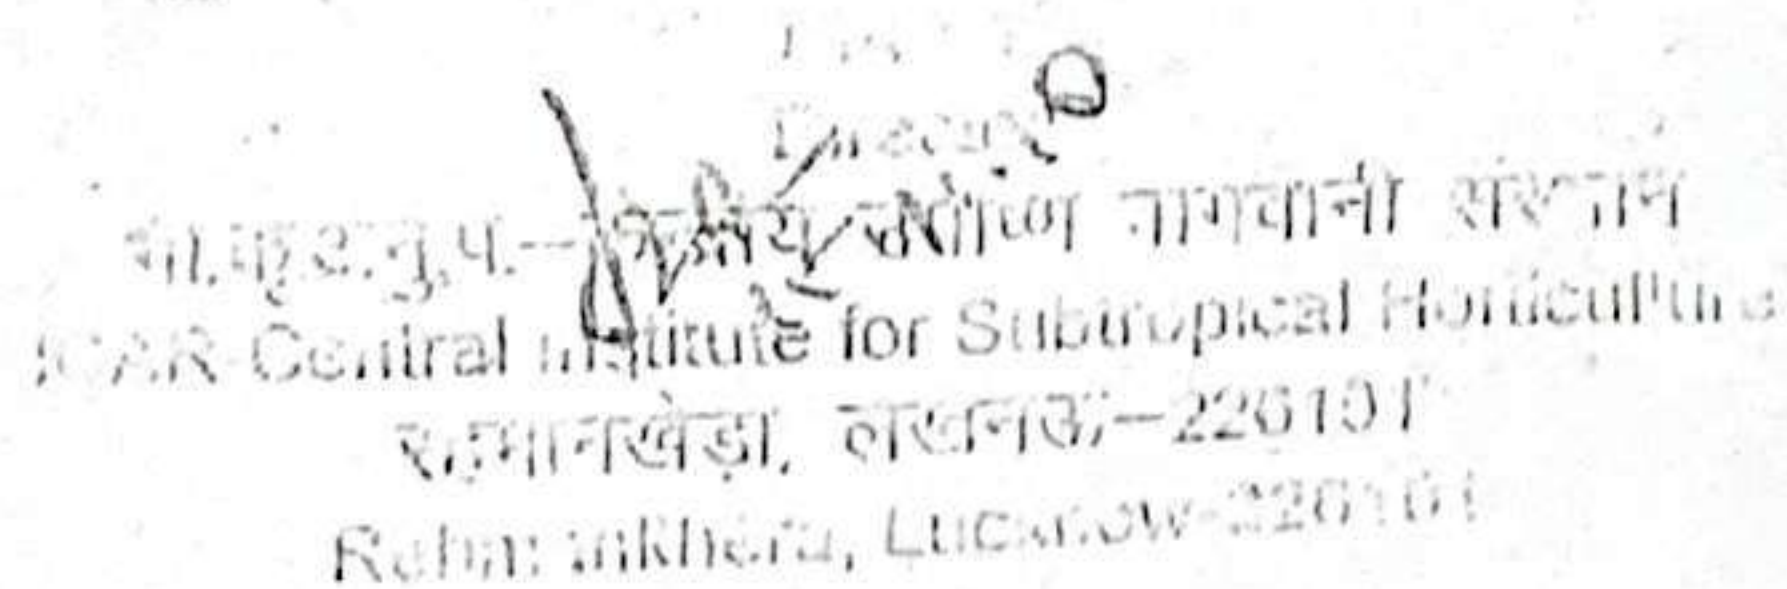 Director
भा.कृ.अनु.प.–केन्द्रीय उपोष्ण बागवानी संस्थान
ICAR-Central Institute for Subtropical Horticulture
रहमानखेड़ा, लखनऊ–226101
Rehmankhera, Lucknow-226101